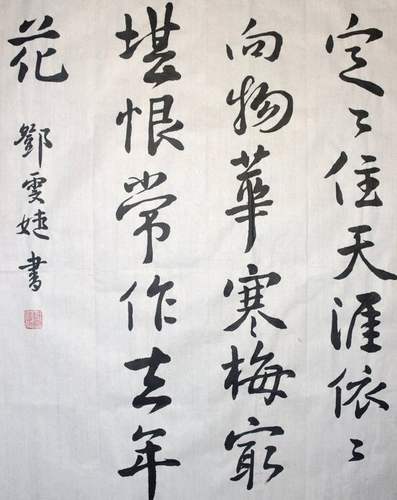 定〻住天涯依〻
向物華寒梅㝡
堪恨常作去年
花
鄧雯婕書